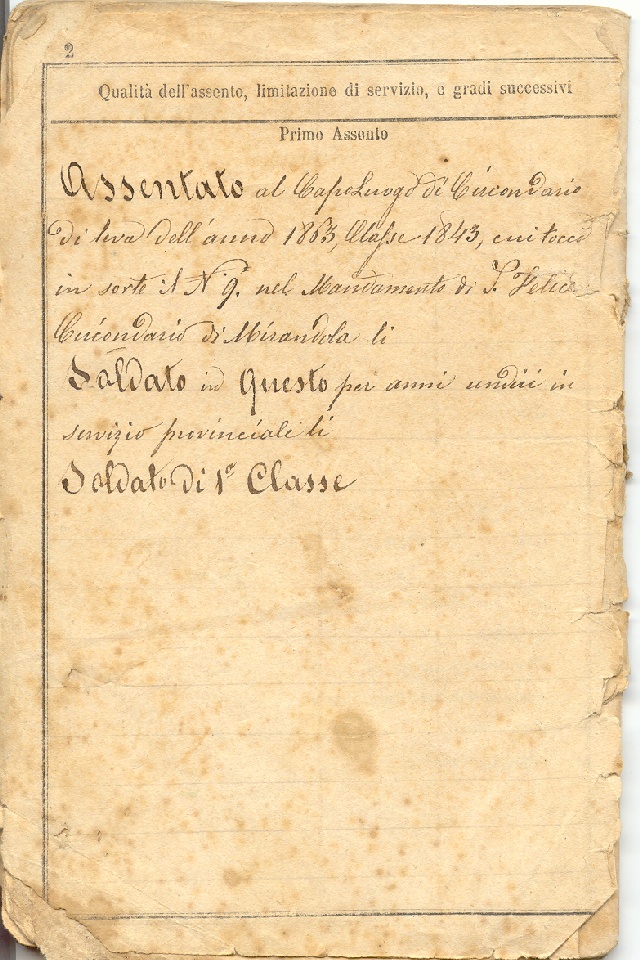 2
Qualità dell'assento, limitazione di servizio, e gradi successivi
Primo Assento
Assentato al CapoLuogo di Circondario
di leva dell'anno 1863, Classe 1843, cui toccò
in sorte il N 9. nel Mandamento di S. Felice
Circondario di Mirandola li
Soldato in questo per anni undici in
servizio provinciale li
Soldato di 1ª Classe